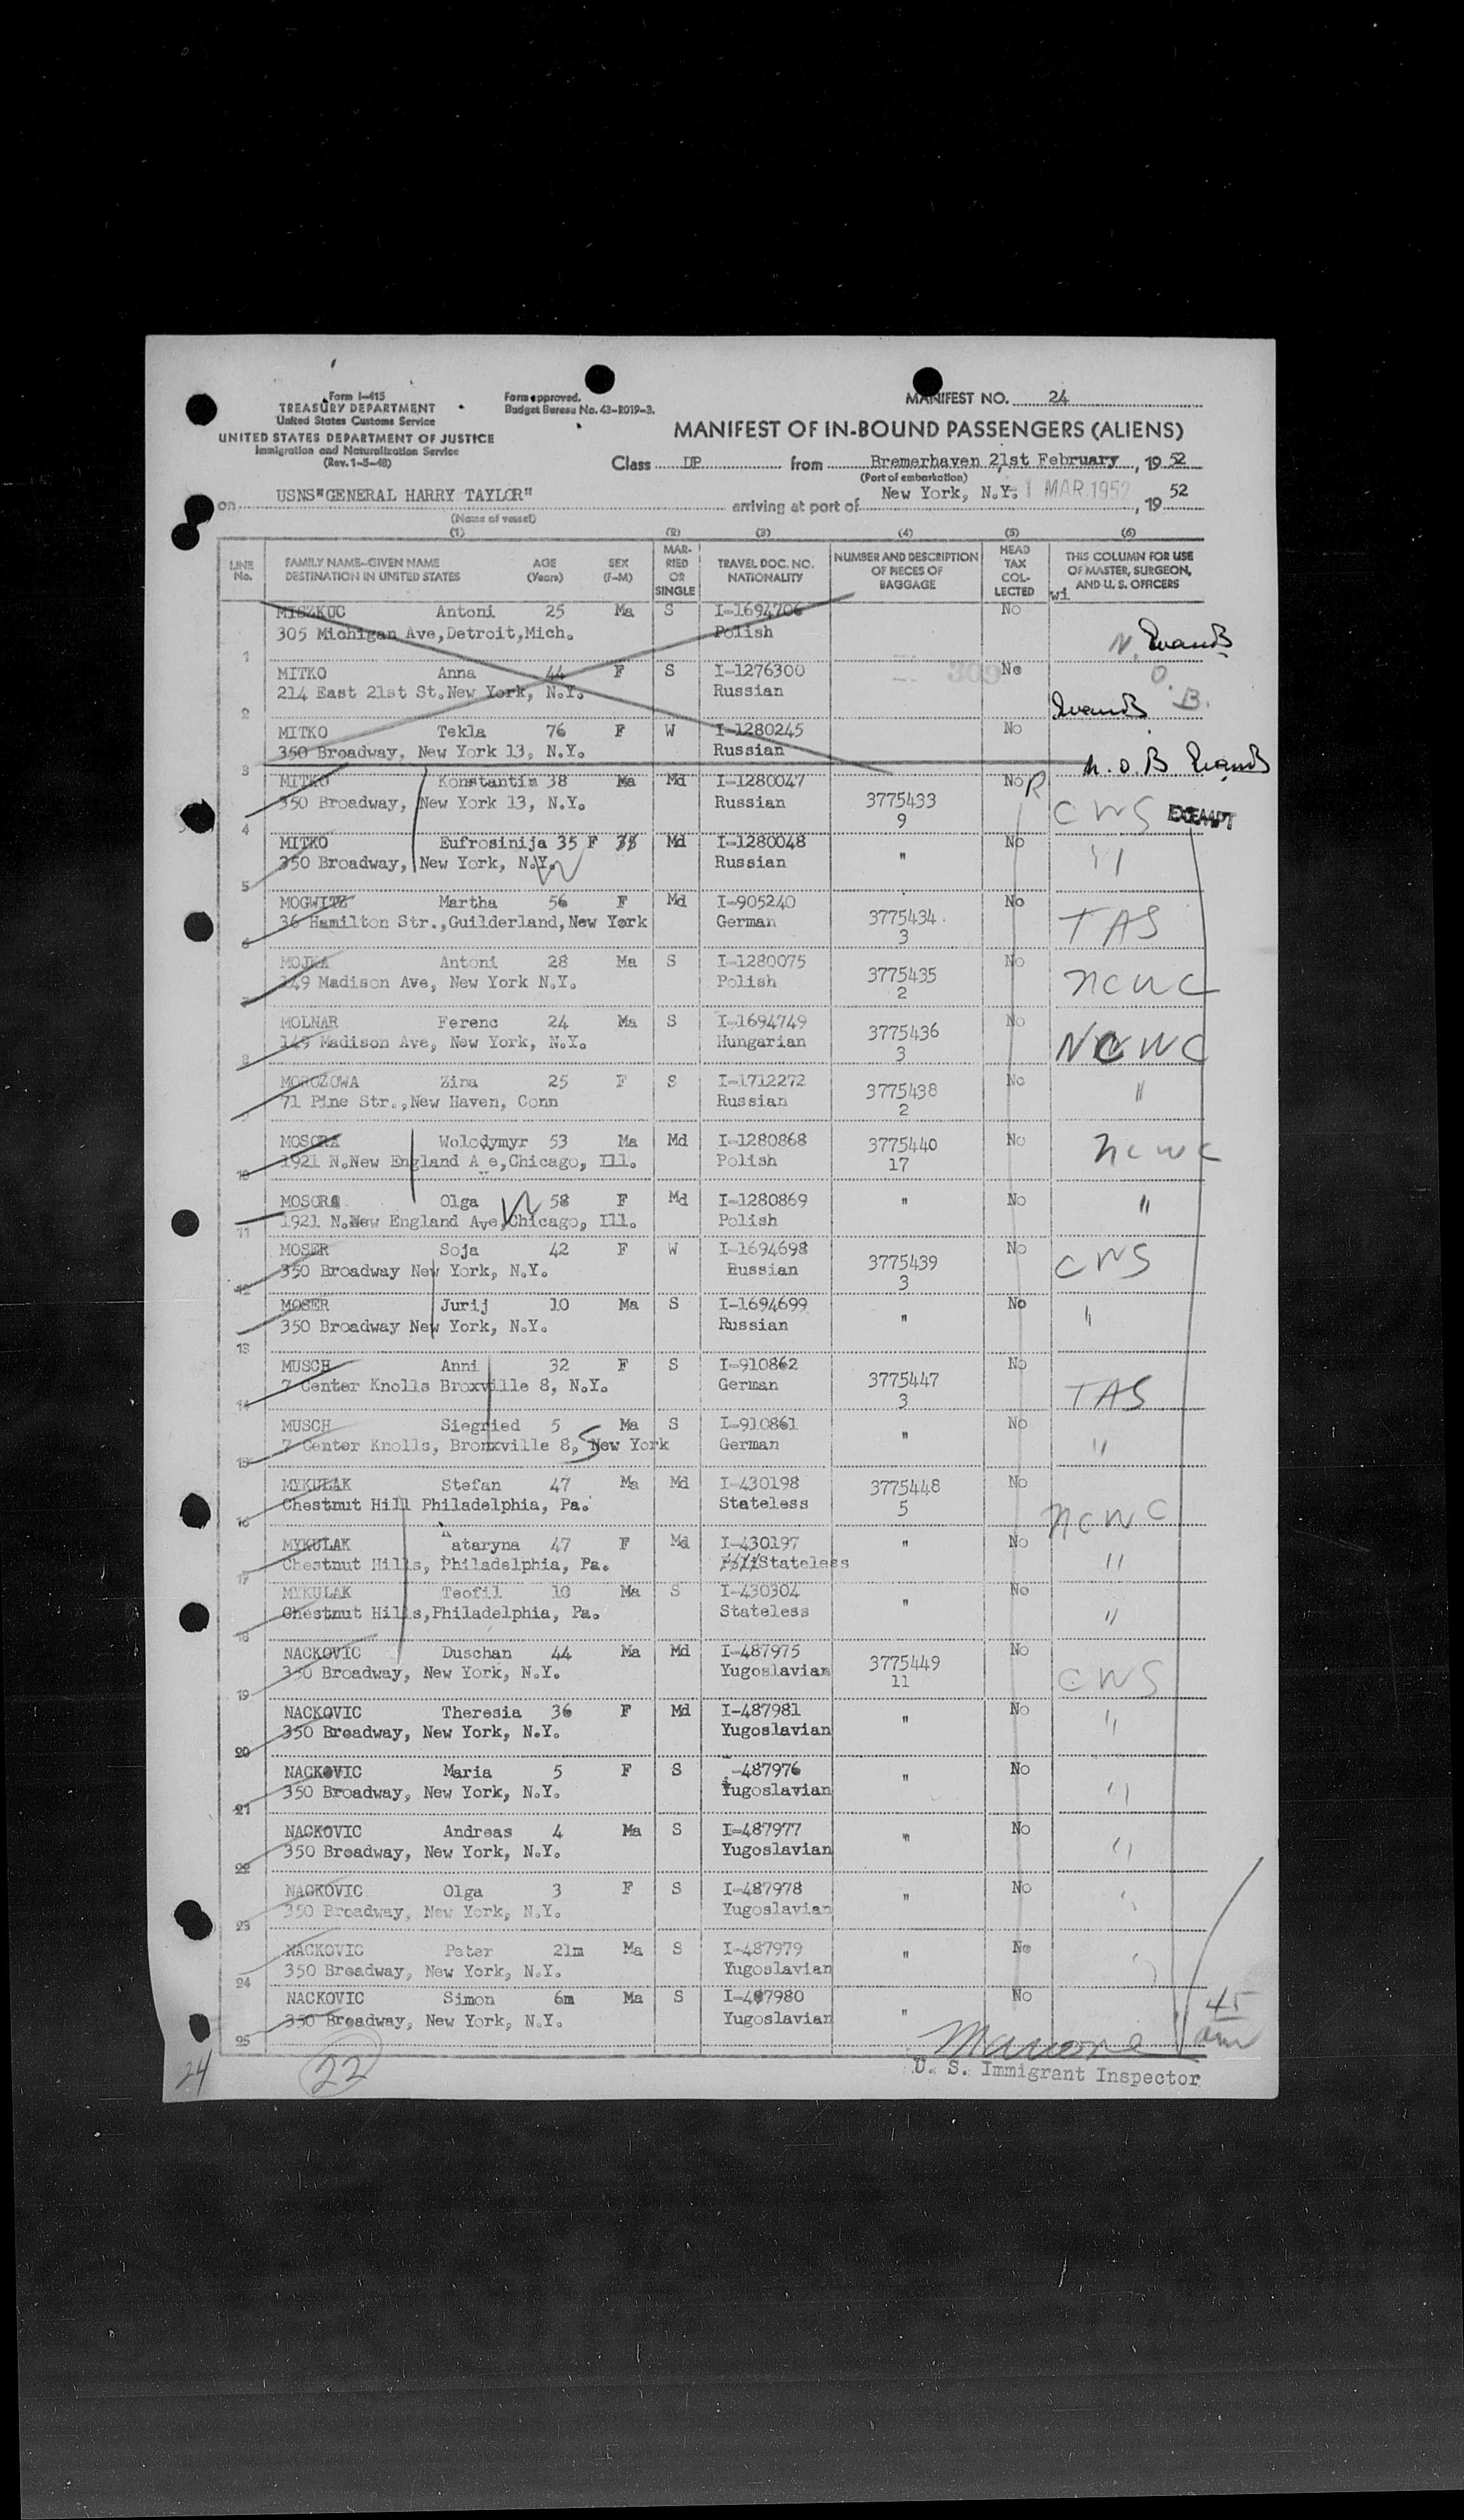 Form I-415
TREASURY DEPARTMENT
United States Customs Service
UNITED STATES DEPARTMENT OF JUSTICE
Immigration and Naturalization Service
(Rev. 1-5-48)
Form approved.
Budget Bureau No. 43-R019-3.
MANIFEST NO. 24
MANIFEST OF IN-BOUND PASSENGERS (ALIENS)
Class DP from Bremerhaven 21st February, 19 52
(Port of embarkation)
on USNS"GENERAL HARRY TAYLOR" arriving at port of New York, N.Y. 1 MAR 1952, 19 52
(Name of vessel)
(1) (2) (3) (4) (5) (6)
LINE No. FAMILY NAME—GIVEN NAME DESTINATION IN UNITED STATES AGE (Years) SEX (F-M) MARRIED OR SINGLE TRAVEL DOC. NO. NATIONALITY NUMBER AND DESCRIPTION OF PIECES OF BAGGAGE HEAD TAX COLLECTED THIS COLUMN FOR USE OF MASTER, SURGEON, AND U. S. OFFICERS
wi
MISZKUC Antoni 25 Ma S I-1694706 No
305 Michigan Ave,Detroit,Mich. Polish
1
MITKO Anna 44 F S I-1276300 309 No
214 East 21st St.New York, N.Y. Russian
2
MITKO Tekla 76 F W I-1280245 No
350 Broadway, New York 13, N.Y. Russian
3 N.O.B
MITKO Konstantin 38 Ma Md I-1280047 No R
350 Broadway, New York 13, N.Y. Russian 3775433 CWS EXEMPT
4 9
MITKO Eufrosinija 35 F Md I-1280048 No
350 Broadway, New York, N.Y. Russian " "
5
MOGWITZ Martha 56 F Md I-905240 No
36 Hamilton Str.,Guilderland,New York German 3775434 TAS
6 3
MOJKA Antoni 28 Ma S I-1280075 No
149 Madison Ave, New York N.Y. Polish 3775435 NCWC
7 2
MOLNAR Ferenc 24 Ma S I-1694749 No
149 Madison Ave, New York, N.Y. Hungarian 3775436 NCWC
8 3
MOROZOWA Zina 25 F S I-1712272 No
71 Pine Str.,New Haven, Conn Russian 3775438 "
9 2
MOSORA Wolodymyr 53 Ma Md I-1280868 3775440 No NCWC
1921 N.New England Ave,Chicago, Ill. Polish 17
10
MOSORA Olga 58 F Md I-1280869 " No "
1921 N.New England Ave,Chicago, Ill. Polish
11
MOSER Soja 42 F W I-1694698 No
350 Broadway New York, N.Y. Russian 3775439 CWS
12 3
MOSER Jurij 10 Ma S I-1694699 No
350 Broadway New York, N.Y. Russian " "
13
MUSCH Anni 32 F S I-910862 No
7 Center Knolls Broxville 8, N.Y. German 3775447 TAS
14 3
MUSCH Siegried 5 Ma S I-910861 No
7 Center Knolls, Bronxville 8, New York German " "
15
MYKULAK Stefan 47 Ma Md I-430198 3775448 No
Chestnut Hill Philadelphia, Pa. Stateless 5 NCWC
16
MYKULAK Kataryna 47 F Md I-430197 " No
Chestnut Hills, Philadelphia, Pa. Stateless "
17
MYKULAK Teofil 10 Ma S I-430304 No
Chestnut Hills,Philadelphia, Pa. Stateless " "
18
NACKOVIC Duschan 44 Ma Md I-487975 No
350 Broadway, New York, N.Y. Yugoslavian 3775449 CWS
19 11
NACKOVIC Theresia 36 F Md I-487981 No
350 Broadway, New York, N.Y. Yugoslavian " "
20
NACKOVIC Maria 5 F S I-487976 No
350 Broadway, New York, N.Y. Yugoslavian " "
21
NACKOVIC Andreas 4 Ma S I-487977 No
350 Broadway, New York, N.Y. Yugoslavian " "
22
NACKOVIC Olga 3 F S I-487978 No
350 Broadway, New York, N.Y. Yugoslavian " "
23
NACKOVIC Peter 21m Ma S I-487979 No
350 Broadway, New York, N.Y. Yugoslavian " "
24
NACKOVIC Simon 6m Ma S I-487980 No
350 Broadway, New York, N.Y. Yugoslavian "
25
45
U. S. Immigrant Inspector
24 22